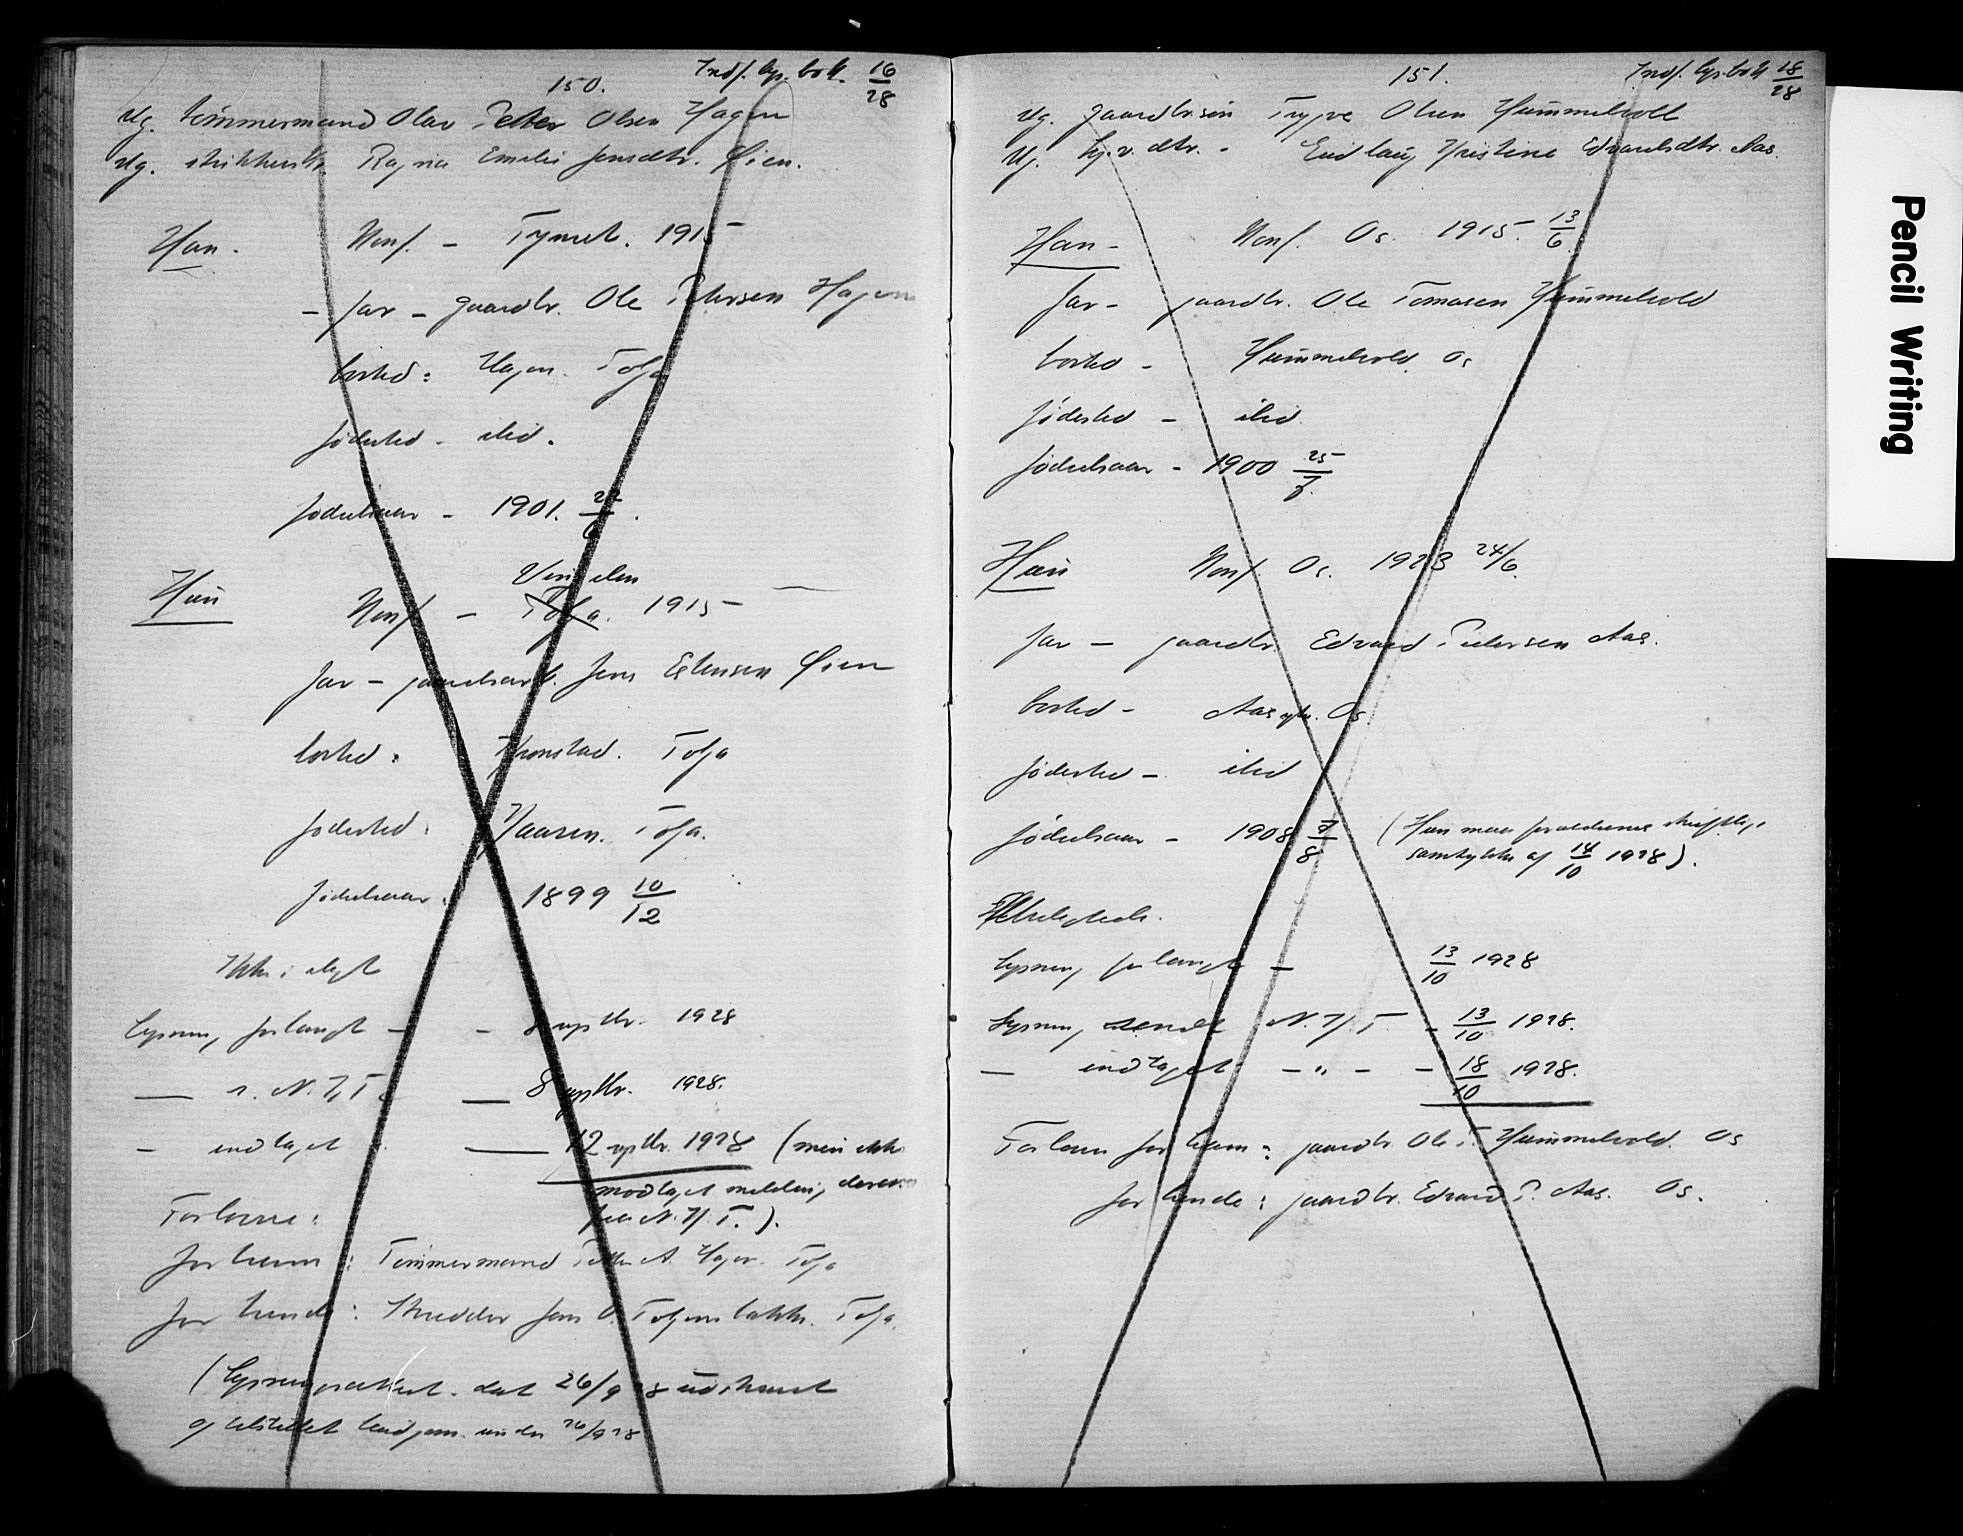 150.
Indf. lys.bok 16/28
Ug. tømmermand Olav Petter Olsen Hagen
Ug. strikkerske Ragna Emelie Jensdtr. Øien.
Han. Konf. - Tynset. 1915
- far - gaardbr. Ole Petersen Hagen
bosted: Hagen. Tolga
fødested - ibid.
fødselsaar - 1901.
Hun Konf. - Vingelen 1915 -
far - gaardsarb. Jens Estensen Øien
bosted: Kronstad. Tolga
fødested: Vaasen. Tolga.
fødselsaar: 1899 10/12
Ikke i slegt
Lysning forlangt - - 8 septbr. 1928
— s. N. Ø. T. — 8 septbr. 1928.
- indtaget — 12 septbr. 1928 (men ikke
modtaget melding derom
fra N. Ø. T.).
Forlovere:
for ham: Tømmermand Petter A. Hagen. Tolga
for hende: Skredder Jens O. Tolgensbakken. Tolga.
(Lysningsattest. dat 26/9 28 utskrevet
og tilstillet brudgom. under 26/9 28
151.
Indf. lys.bok 18/28
Ug. gaardbrsøn Trygve Olsen Hummelvoll
Ug. hj.v. dtr. - Gudlaug Kristine Edvardsdtr. Aas.
Han - Konf. Os. 1915. 13/6
Far - gaardbr. Ole Tomasen Hummelvold
bosted - Hummelvold. Os
fødested - ibid.
fødselsaar - 1900 25/7.
Hun Konf. Os. 1923 24/6.
far - gaardbr. Edvard Petersen Aas.
bosted - Aas Os.
fødested - ibid
fødselsaar - 1908 7/8 (Hun med forældrenes skriftlige
samtykke af 14/10 1928).
Ubeslegtede.
Lysning forlangt - 13/10 1928
Lysning sendt N. Ø. T. - 13/10 1928.
— indtaget - " - - 18/10 1928.
Forlover for ham: gaardbr. Ole T. Hummelvold. Os
for hende: gaardbr. Edvard P. Aas. Os.
Pencil Writing